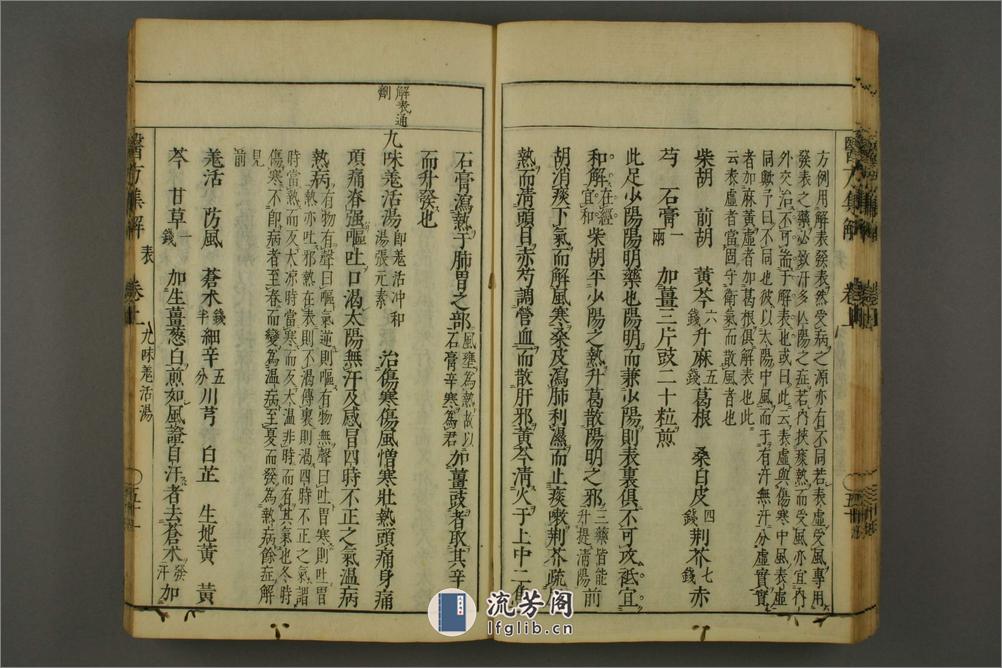 方例用解表發表然受病之源亦有不同若表虛受風專用
發表之藥必致汗多亡陽之症若內挾痰熱而受風亦宜內
外交治不可耑于解表也或曰此云表虛與傷寒中風表虛
同歟予曰不同也彼以太陽中風而于有汗無汗分虛實實
者加麻黃虛者加葛根俱解表也此
云表虛者當固守衛氣而散風者也
柴胡 前胡 黃芩六錢 升麻五錢 葛根 桑白皮四錢 荊芥七錢 赤
芍 石膏一兩 加薑三片豉二十粒煎
此足少陽陽明藥也陽明而兼少陽則表裏俱不可攻祗宜
和解在經宜和柴胡平少陽之熱升葛散陽明之邪三藥皆能升提清陽前
胡消痰下氣而解風寒桑皮瀉肺利濕而止痰嗽荊芥疏
熱而清頭目赤芍調營血而散肝邪黃芩清火于上中二焦
石膏瀉熱于肺胃之部風壅為熱故以石膏辛寒為君加薑豉者取其辛
而升發也
解表通劑
九味羌活湯即羌活冲和湯張元素 治傷寒傷風憎寒壯熱頭痛身痛
項痛脊强嘔吐口渴太陽無汗及感冒四時不正之氣溫病
熱病有物有聲曰嘔氣逆則嘔有物無聲曰吐胃寒則吐胃
熱亦吐邪熱在表則不渴傳裏則渴四時不正之氣謂
時當熱而反大涼時當寒而反大溫非時而有其氣也冬時
傷寒不即病者至春而變為溫病至夏而發為熱病餘症解
見前
羌活 防風 蒼术錢半 細辛五分 川芎 白芷 生地黃 黃
芩 甘草一錢 加生薑葱白煎如風證自汗者去蒼术發汗加
醫方集解 表 卷上 九味羌活湯 五十一
醫方集解 卷上 五十
流芳阁
lfglib.cn